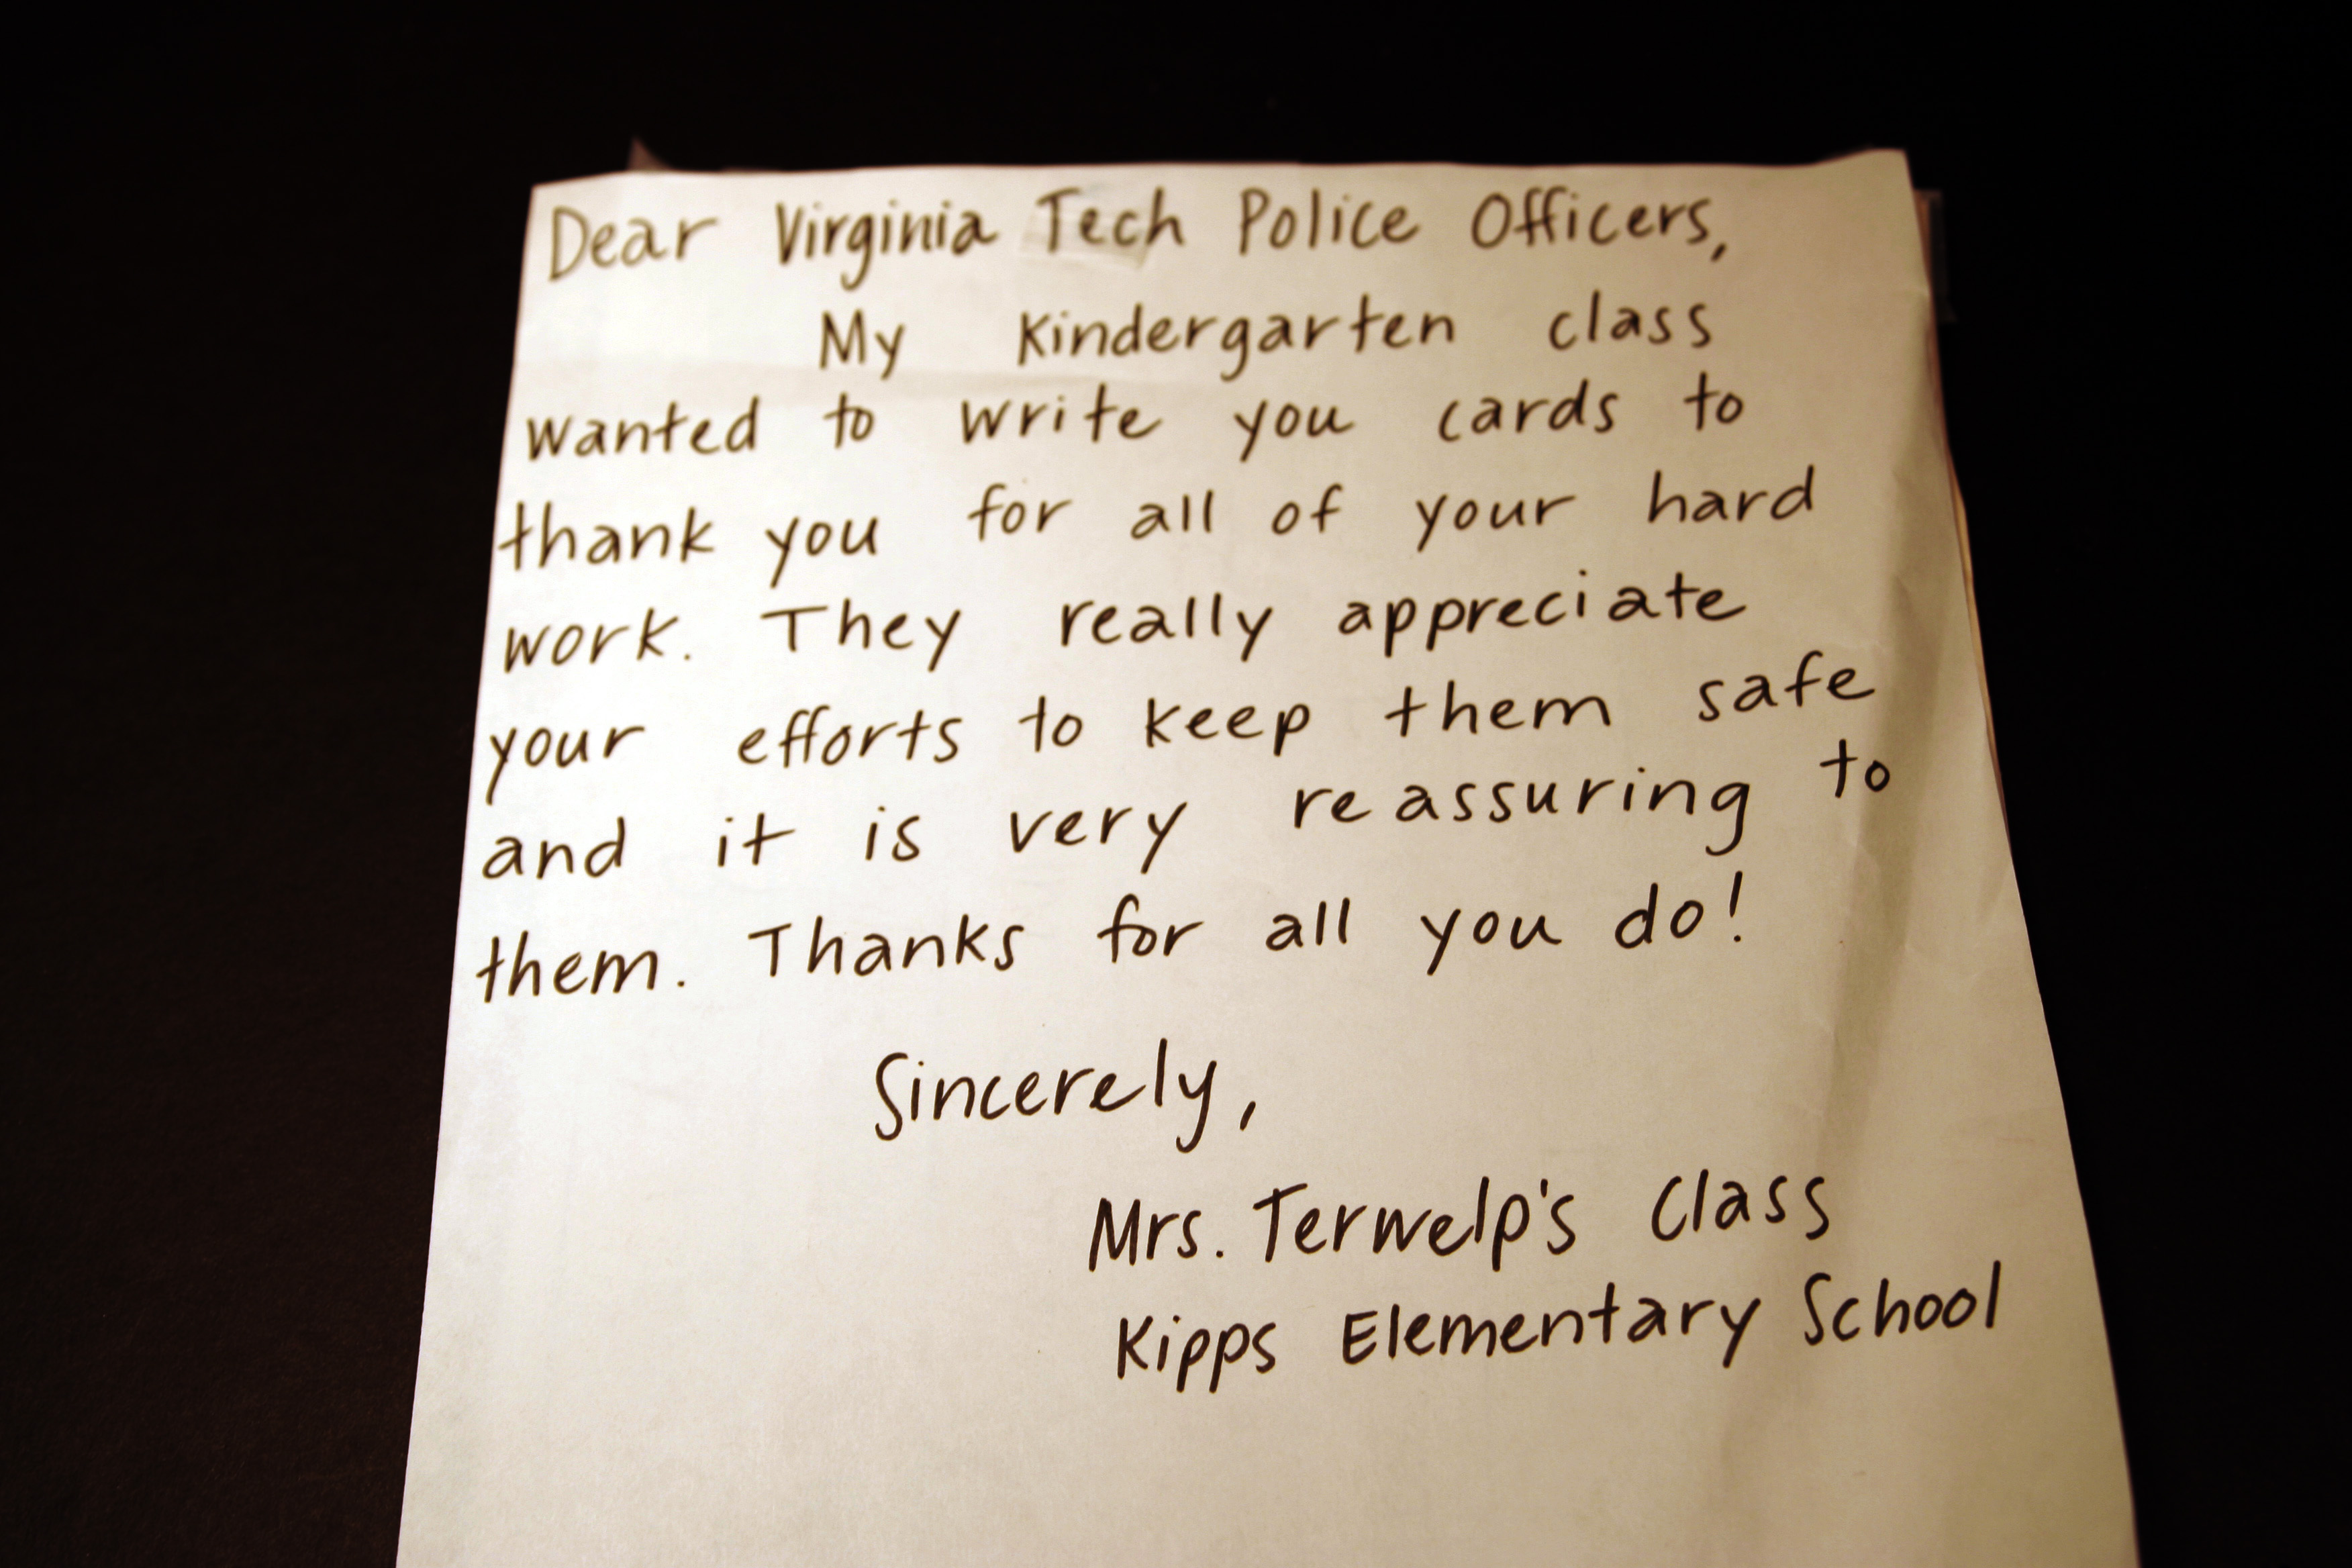 Dear Virginia Tech Police Officers,
My Kindergarten class
wanted to write you cards to
thank you for all of your hard
work. They really appreciate
your efforts to keep them safe
and it is very reassuring to
them. Thanks for all you do!
Sincerely,
Mrs. Terwelp's Class
Kipps Elementary School